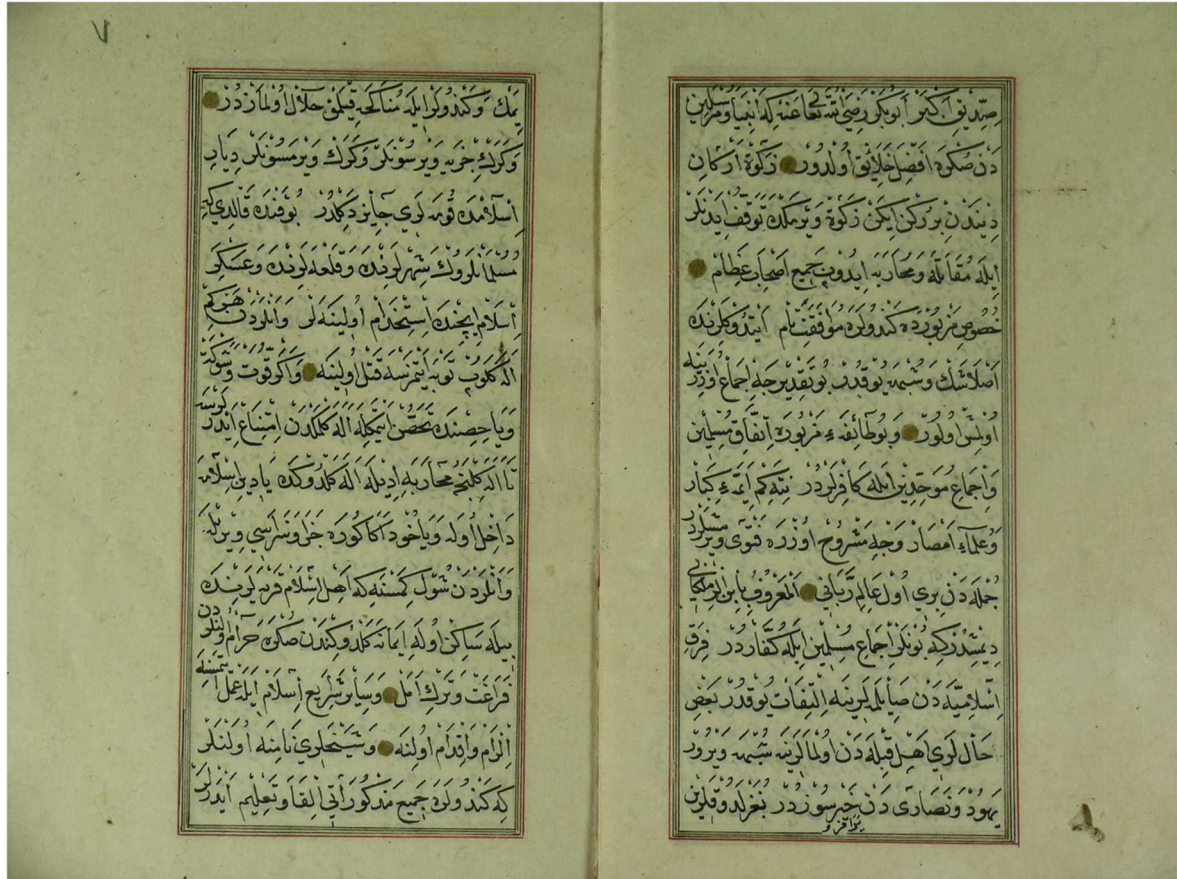 صِدِّيقِ اَكْبَرْ اَبُوبَكْرْ رَضِيَ اللّٰهُ تَعَالٰى عَنْهُ كِه اَنْبِيَا وَمُرْسَلِينْ
دَنْ صُكْرَه اَفْضَلِ خَلَائِقْ اُولْدُورْ زَكٰوةْ اَرْكَانِ
دِينْدَنْ بِرْ رُكْنْ اِيكَنْ زَكٰوةْ وِيرْمَكْدَه تَوَقُّفْ اِيدَنْلَرْ
اِيلَه مُقَاتَلَه وَمُحَارَبَه اِيدُوبْ جَمِيعِ اَصْحَابِ عِظَامْ
خُصُوصِ مَزْبُورْدَه كَنْدُولَرَه مُوَافَقَتِ تَامْ اِيتْدُوكْلَرِنْدَه
اَصْلَا شَكْ وَشُبْهَه يُوقْدُرْ بُو تَقْدِيرْجَه اِجْمَاعْ اُوزَرِينَه
اُولْمِشْ اُولُورْ وَبُو طَائِفَهءِ مَزْبُورَه اِتِّفَاقِ مُسْلِمِينْ
وَاِجْمَاعِ مُوَحِّدِينْ اِيلَه كَافِرْلَرْدُرْ نِتَه كِمْ اَئِمَّهءِ كِبَارْ
وَعُلَمَاءِ اَمْصَارْ وَجْهِ مَشْرُوحْ اُوزْرَه فَتْوٰى وِيرْمِشْلَرْدُرْ
جُمْلَه دَنْ بِرِي اُولْ عَالِمِ رَبَّانِي اَلْمَعْرُوفْ بِابْنِ الزَّمْلَكَانِي
دِيمِشْدُرْ كِه بُونْلَرْ اِجْمَاعِ مُسْلِمِينْ اِيلَه كُفَّارْدُرْ فِرَقِ
اِسْلَامِيَّه دَنْ صَايِلْمَه لَرِينَه اِلْتِفَاتْ يُوقْدُرْ بَعْضِ
حَالْ لَرِي اَهْلِ قِبْلَه دَنْ اُولْمَالَرِينَه شُبْهَه وِيرُورْ
يَهُودْ وَنَصَارٰى دَنْ خَيْرْسُوزْدُرْ بُغَزْلَدُوقْلَرِينْ
يِمَكْ وَكَنْدُولَرْ اِيلَه مُنَاكَحَه قِيلْمَقْ حَلَالْ اُولْمَازْدُرْ
وَكَرَكْ جِزْيَه وِيرْسُونْلَرْ وَكَرَكْ وِيرْمَسُونْلَرْ دِيَارِ
اِسْلَامْدَه قُومَه لَرِي جَائِزْ دَكِلْدُرْ بُوقَنْدَه قَالْدِي كِه
مُسْلِمَانْلَرُوكْ شَهِرْلَرِنْدَه وَقَلْعَه لَرِنْدَه وَعَسْكَرِ
اِسْلَامْ اِيچِنْدَه اِسْتِخْدَامْ اُولِنَه لَرْ وَانْلَرْدَنْ هَرْ كِمْ
اَلَه كَلُوبْ تَوْبَه اِيتْمَزْسَه قَتْلْ اُولِنَه وَاكَرْ قُوَّتْ وَشَوْكَتْ
وَيَا حِصِنْدَه تَحَصُّنْ اِيتْمَكْلَه اَلَه كَلْمَكْدَنْ اِمْتِنَاعْ اِيدَرْلَرْسَه
تَا اَلَه كَلِنْجَه مُحَارَبَه اِدِيلَه اَلَه كَلْدُوكْدَه يَا دِينِ اِسْلَامَه
دَاخِلْ اُولَه وَيَاخُودْ اَكَا كُورَه جَزَا وَسَزَاسِي وِيرِيلَه
وَانْلَرْدَنْ شُولْ كِمْسَنَه كِه اَهْلِ اِسْلَامْ قَرْيَه لَرِينْدَه
بِيلَه سَاكِنْ اُولَه اِيمَانَه كَلْدُوكِنْدَنْ صُكْرَه حَرَامْ اُولَنْلَرْدَنْ
فَرَاغَتْ وَتَرْكِ اَمَلْ وَسَايِرْ شَرَايِعِ اِسْلَامْ اِيلَه عَمَلْ اِيتْمَسِنَه
اِلْزَامْ وَاِقْدَامْ اُولِنَه وَشَيْخْلَرِي نَامِنَه اُولَنْلَرْ
كِه كَنْدُولَرَه جَمِيعِ مَذْكُورَاتِي اِلْقَا وَتَعْلِيمْ اِيدَرْلَرْ